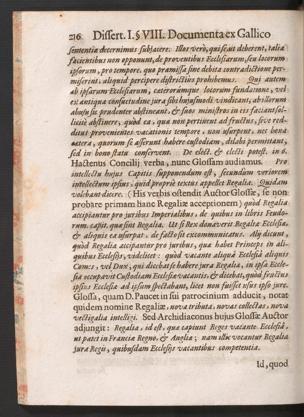 216 Dissert. I. § VIII. Documenta ex Gallico
sententia decernimus subjacere. Illos verò, qui se, ut deberent, talia
facientibus non opponunt, de proventibus Ecclesiarum, seu locorum
ipsorum, pro tempore, quo præmissa sine debita contradictione per-
miserint, aliquid percipere districtiùs prohibemus. Qui autem
ab ipsarum Ecclesiarum, cæterorúmque locorum fundatione, vel
ex antiqua consuetudine jura sibi hujusmodi vindicant, ab illorum
abusu sic prudenter abstineant, & suos ministros in eis faciant sol-
licitè abstinere, quòd ea, quæ non pertinent ad fructus, sive red-
ditus provenientes vacationis tempore, non usurpent, nec bona
cætera, quorum se asserunt habere custodiam, dilabi permittant,
sed in bono statu conservent. De elect. & electi potest. in 6.
Hactenus Concilij verba, nunc Glossam audiamus. Pro
intellectu hujus Capitis supponendum est, secundum veriorem
intellectum ipsius, quid propriè textus appellet Regalia. Quidam
volebant dicere. (His verbis ostendit Auctor Glossæ, se non
probare primam hanc Regaliæ acceptionem) quòd Regalia
accipiantur pro juribus Imperialibus, de quibus in libris Feudo-
rum. capit. quæ sint Regalia. Ut si Rex donaverit Regalia Ecclesiæ,
& aliquis ea usurpat: de facto sit excommunicatus. Alij dicunt,
quòd Regalia accipiantur pro juribus, quæ habet Princeps in ali-
quibus Ecclesijs, videlicet: quòd vacante aliquâ Ecclesiâ aliquis
Comes, vel Dux, qui dicebat se habere jura Regalia, in ipsâ Eccle-
siâ occupavit Custodiam Ecclesiæ vacantis; & dicebat, quòd fructus
ipsius Ecclesiæ ad ipsum spectabant, licet non fuisset usus ipso jure.
Glossa, quam D. Paucet in sui patrocinium adducit, notat
quidem nomine Regaliæ, nova tributa, novas collectas, nova
vectigalia intelligi. Sed Archidiaconus hujus Glossæ Auctor
adjungit: Regalia, id est, quæ capiunt Reges vacante Ecclesiâ,
ut patet in Franciæ Regno, & Angliæ; nam illîc vocantur Regalia
jura Regis, quibusdam Ecclesijs vacantibus competentia.
Id, quod